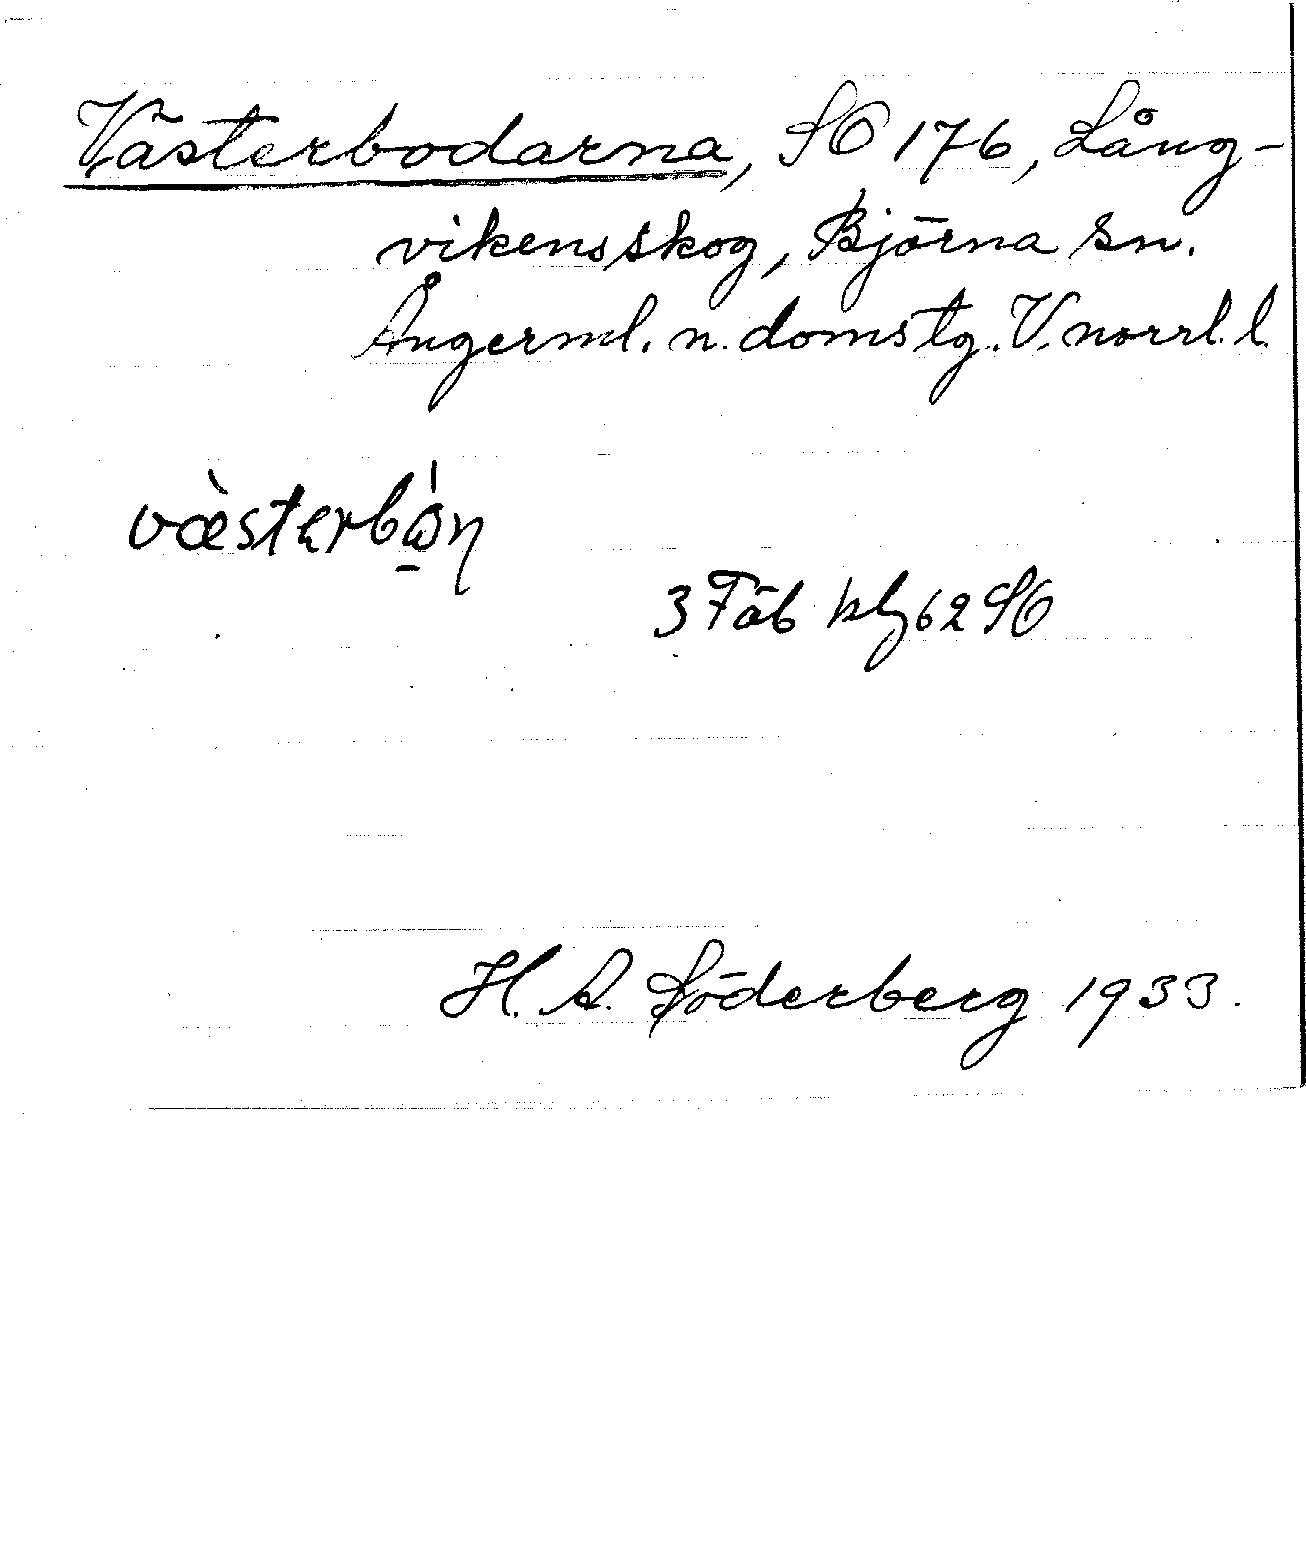 Västerbodarna, SO 176, Lång-
vikens skog, Björna sn.
Ångerml. n. domstg. V. norrl. l.
3 Fäb
H. A. Söderberg 1933.